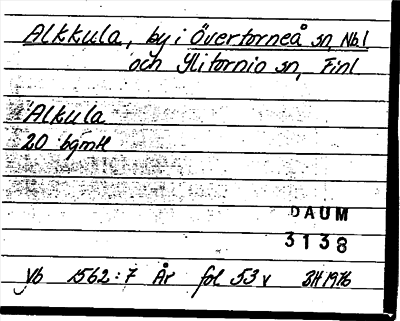 Alkkula, by i Övertorneå sn, Nbl
och Ylitornio sn, Finl
Alkula
20 bgmtl
DAUM
3138
Vb 1562:7 År fol 53 v BH 1976